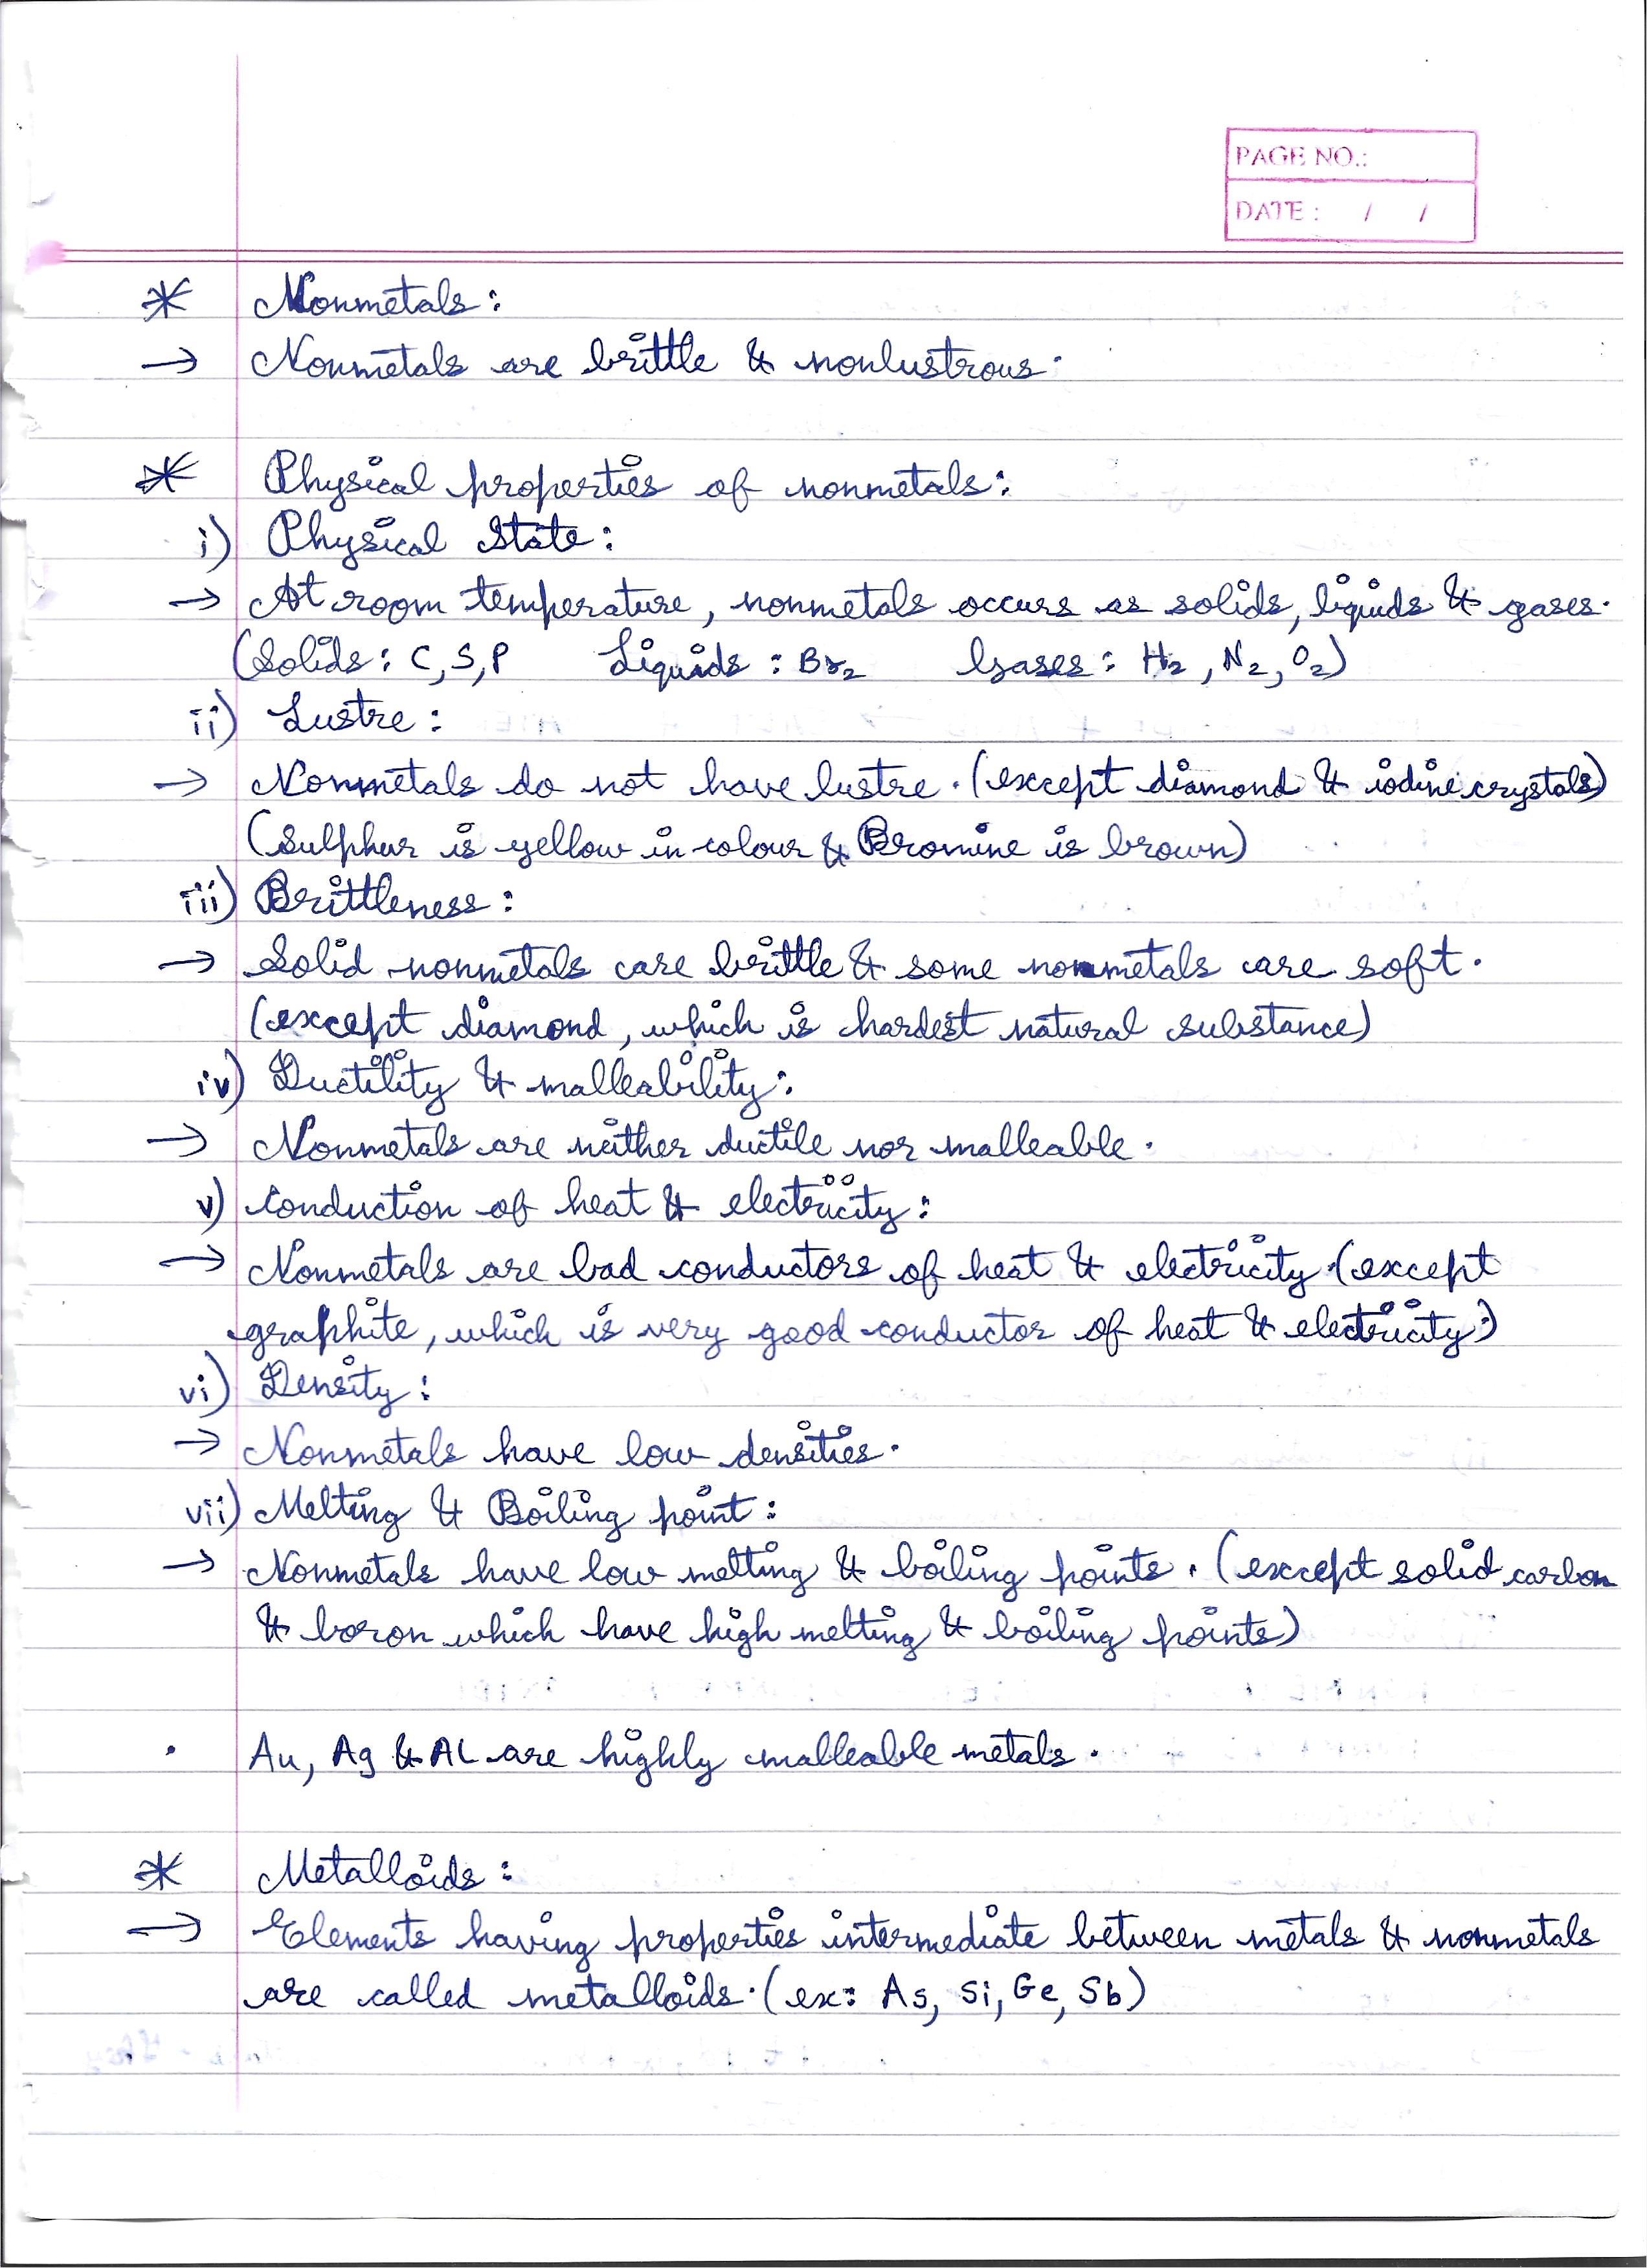 PAGE NO.:
DATE : / /
* Nonmetals:
→ Nonmetals are brittle & nonlustrous.
* Physical properties of nonmetals:
i) Physical State:
→ At room temperature, nonmetals occurs as solids, liquids & gases.
(Solids: C, S, P Liquids : Br₂ Gases: H₂, N₂, O₂)
ii) Lustre:
→ Nonmetals do not have lustre. (except diamond & iodine crystals)
(Sulphur is yellow in colour & Bromine is brown)
iii) Brittleness:
→ Solid nonmetals are brittle & some nonmetals are soft.
(except diamond, which is hardest natural substance)
iv) Ductility & malleability:
→ Nonmetals are neither ductile nor malleable.
v) Conduction of heat & electricity:
→ Nonmetals are bad conductors of heat & electricity. (except
graphite, which is very good conductor of heat & electricity.)
vi) Density:
→ Nonmetals have low densities.
vii) Melting & Boiling point:
→ Nonmetals have low melting & boiling points. (except solid carbon
& boron which have high melting & boiling points)
• Au, Ag & Al are highly malleable metals.
* Metalloids:
→ Elements having properties intermediate between metals & nonmetals
are called metalloids. (ex: As, Si, Ge, Sb)